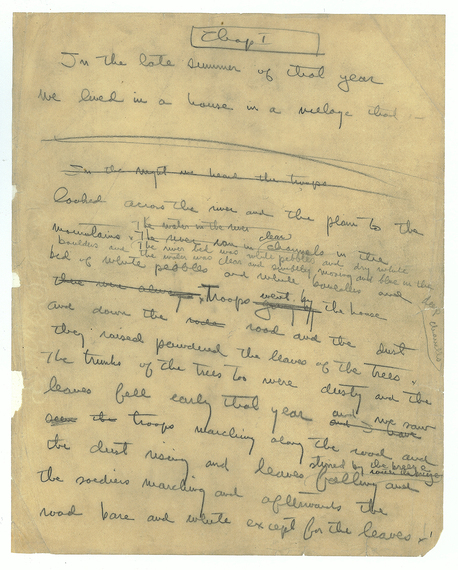 Chap I
In the late summer of that year
we lived in a house in a village that
In the night we heard the troops
looked across the river and the plain to the
mountains. The water in the river clear
The river ran in channels in the
boulders and The river bed was white pebbles and dry white
the water was clear and swiftly moving and blue in the
bed of white pebbles and white boulders and
channels
there were always Troops went by the house
and down the road and the dust
they raised powdered the leaves of the trees.
The trunks of the trees too were dusty and the
leaves fell early that year and we saw
seen the troops marching along the road and
the dust rising and leaves, stirred by the breeze
falling and
the soldiers marching and afterwards the
road bare and white except for the leaves.